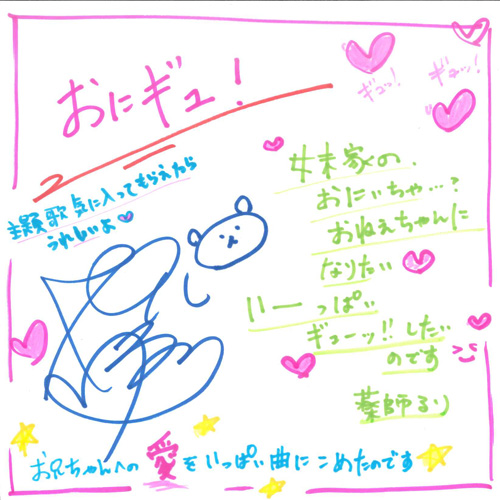 おにギュ!
ギュッ!
ギュッ!
主題歌気に入ってもらえたら
うれしいよ♥
妹家の、
おにぃちゃ…?
おねぇちゃんに
なりたい♥
いーっぱい
ギューッ!!したい
のです
薬師るり
お兄ちゃんへの愛をいっぱい曲にこめたのです